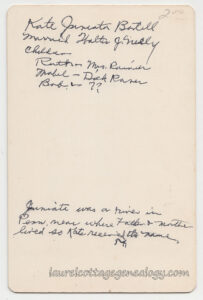 2.00
Kate Juniata Botell
Married Walter J. Neely
Children
Ruth - Mrs. Rainier
Mabel - Dick Raner
Bob - ??
Juniate was a river in
Penn. near where Father & mother
lived so Kate received the name.
laurelcottagegenealogy.com